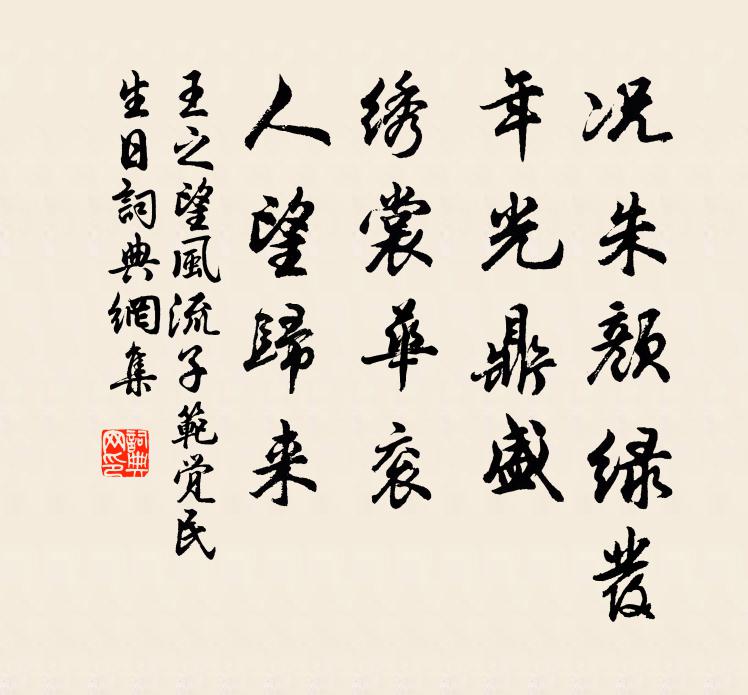 况朱颜绿发
年光鼎盛
绣裳华衮
人望歸来
王之望風流子範觉民
生日詞典網集
詞典
网印